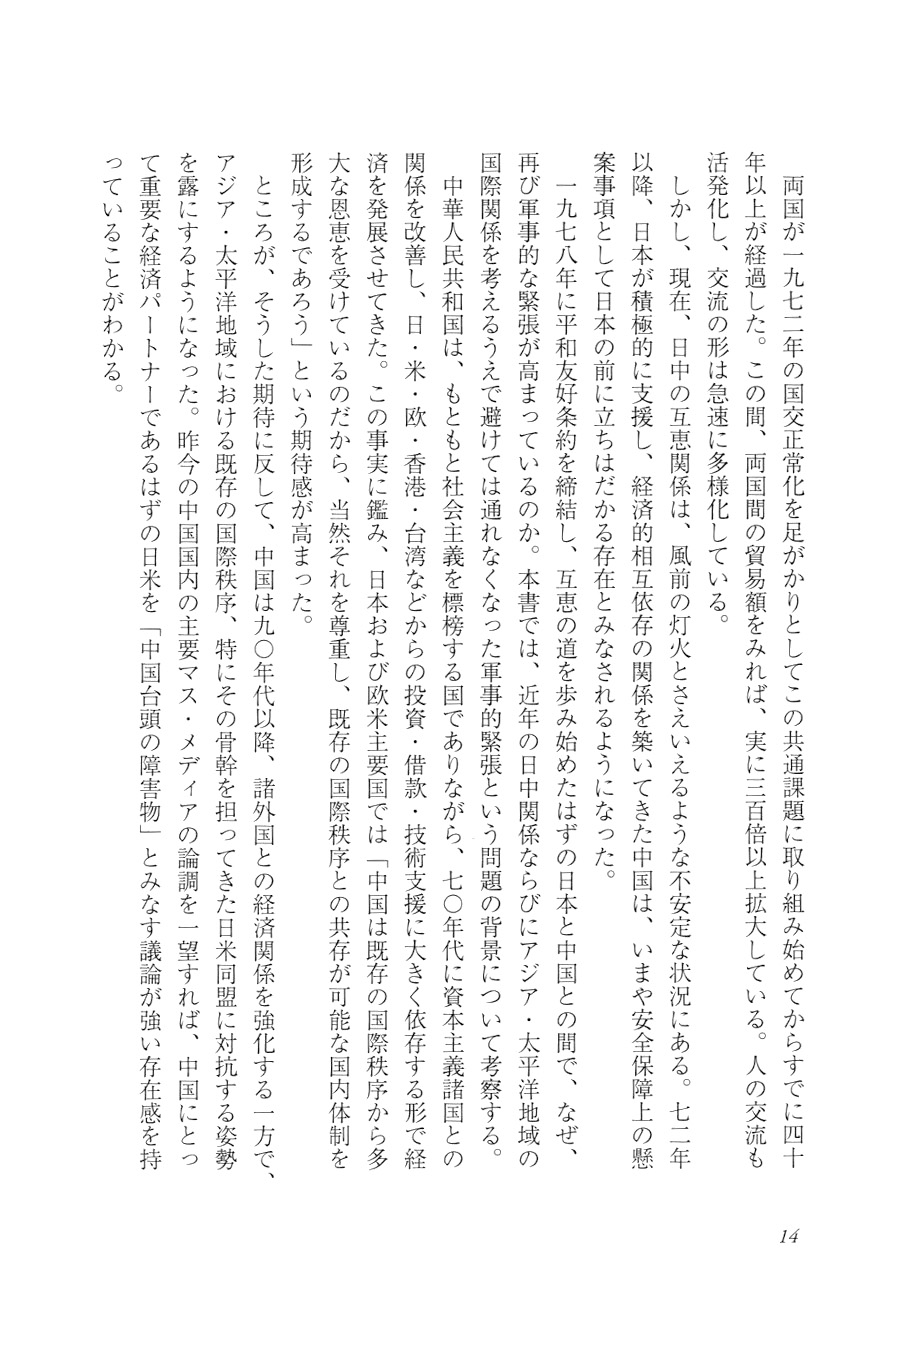 両国が一九七二年の国交正常化を足がかりとしてこの共通課題に取り組み始めてからすでに四十
年以上が経過した。この間、両国間の貿易額をみれば、実に三百倍以上拡大している。人の交流も
活発化し、交流の形は急速に多様化している。
しかし、現在、日中の互恵関係は、風前の灯火とさえいえるような不安定な状況にある。七二年
以降、日本が積極的に支援し、経済的相互依存の関係を築いてきた中国は、いまや安全保障上の懸
案事項として日本の前に立ちはだかる存在とみなされるようになった。
一九七八年に平和友好条約を締結し、互恵の道を歩み始めたはずの日本と中国との間で、なぜ、
再び軍事的な緊張が高まっているのか。本書では、近年の日中関係ならびにアジア・太平洋地域の
国際関係を考えるうえで避けては通れなくなった軍事的緊張という問題の背景について考察する。
中華人民共和国は、もともと社会主義を標榜する国でありながら、七〇年代に資本主義諸国との
関係を改善し、日・米・欧・香港・台湾などからの投資・借款・技術支援に大きく依存する形で経
済を発展させてきた。この事実に鑑み、日本および欧米主要国では「中国は既存の国際秩序から多
大な恩恵を受けているのだから、当然それを尊重し、既存の国際秩序との共存が可能な国内体制を
形成するであろう」という期待感が高まった。
ところが、そうした期待に反して、中国は九〇年代以降、諸外国との経済関係を強化する一方で、
アジア・太平洋地域における既存の国際秩序、特にその骨幹を担ってきた日米同盟に対抗する姿勢
を露にするようになった。昨今の中国国内の主要マス・メディアの論調を一望すれば、中国にとっ
て重要な経済パートナーであるはずの日米を「中国台頭の障害物」とみなす議論が強い存在感を持
っていることがわかる。
14